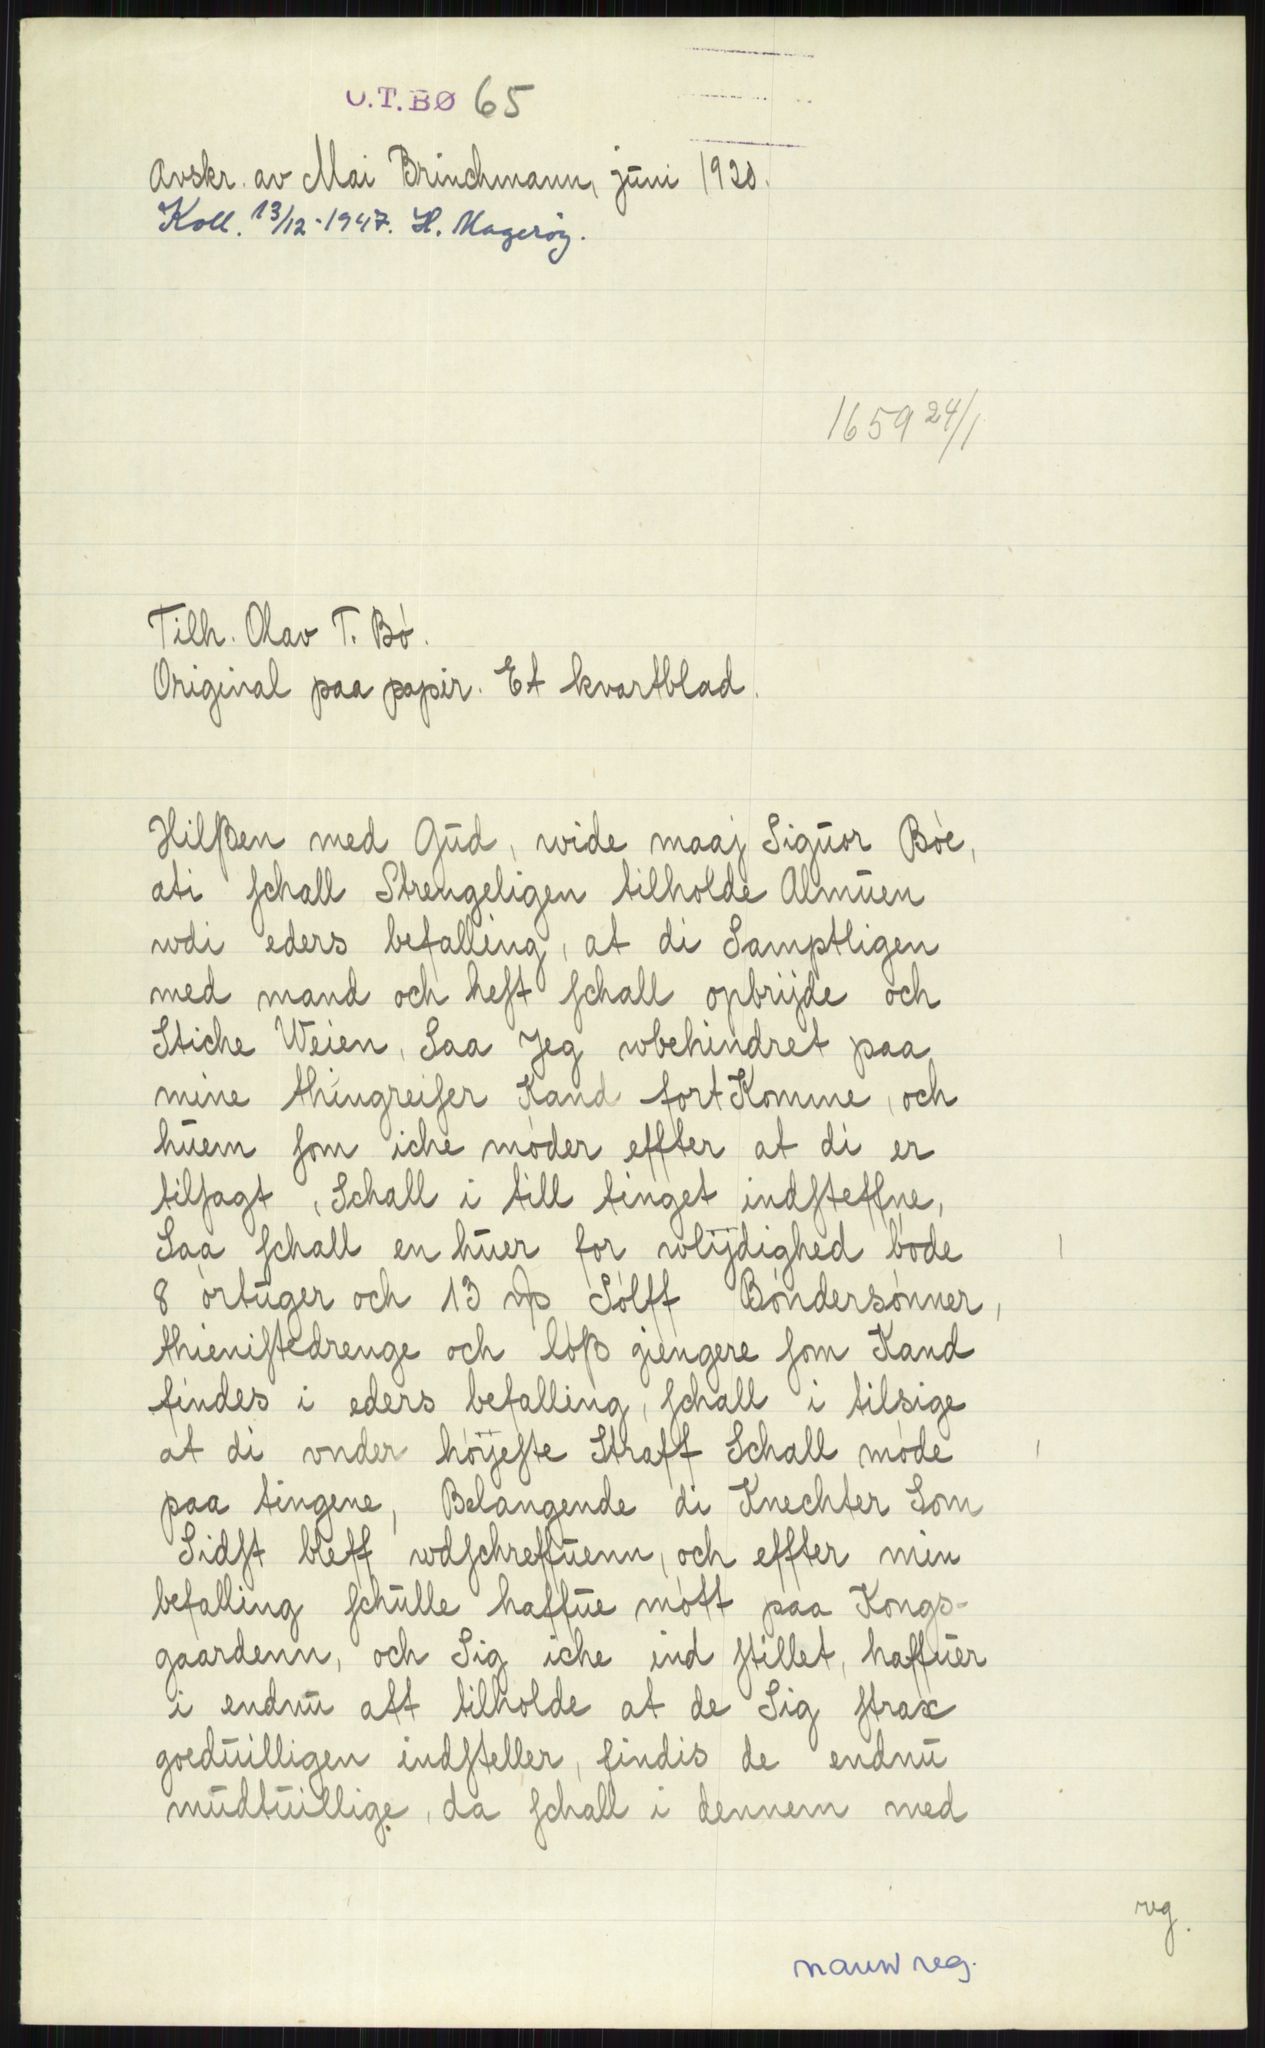 O.T.BØ 65
Avskr. av Mai Brinchmann, juni 1920.
Koll. 13/12-1947. H. Magerøy.
1659 24/1
Tilh. Olav T. Bø.
Original paa papir. Et kvartblad.
Hilßen med Gud, wide maaj Siguor Bøe,
ati schall Strengeligen tilholde Almuen
wdi eders befalling, at di Samptligen
med mand och hest schall opbrijde och
Stiche Weien, Saa Jeg wbehindret paa
mine thingreiser Kand fort Komme, och
huem som iche møder effter at di er
tilsagt, Schall i till tinget indsteffne,
Saa schall en huer for wlijdighed bøde
8 ørtuger och 13 Sølff Bøndersønner,
thienistedrenge och løß giengere som Kand
findes i eders befalling, schall i tilsige
at di vnder høijeste Straff Schall møde
paa tingene, Belangende di Knechter Som
Sidst bleff wdschreffuenn, och effter min
befalling schulle haffue møtt paa Kongs-
gaardenn, och Sig iche ind stillet, haffuer
i endnu att tilholde at de Sig strax
goeduilligen indsteller, findis de endnu
mudtuillige, da schall i dennem med
rg.
navn reg.